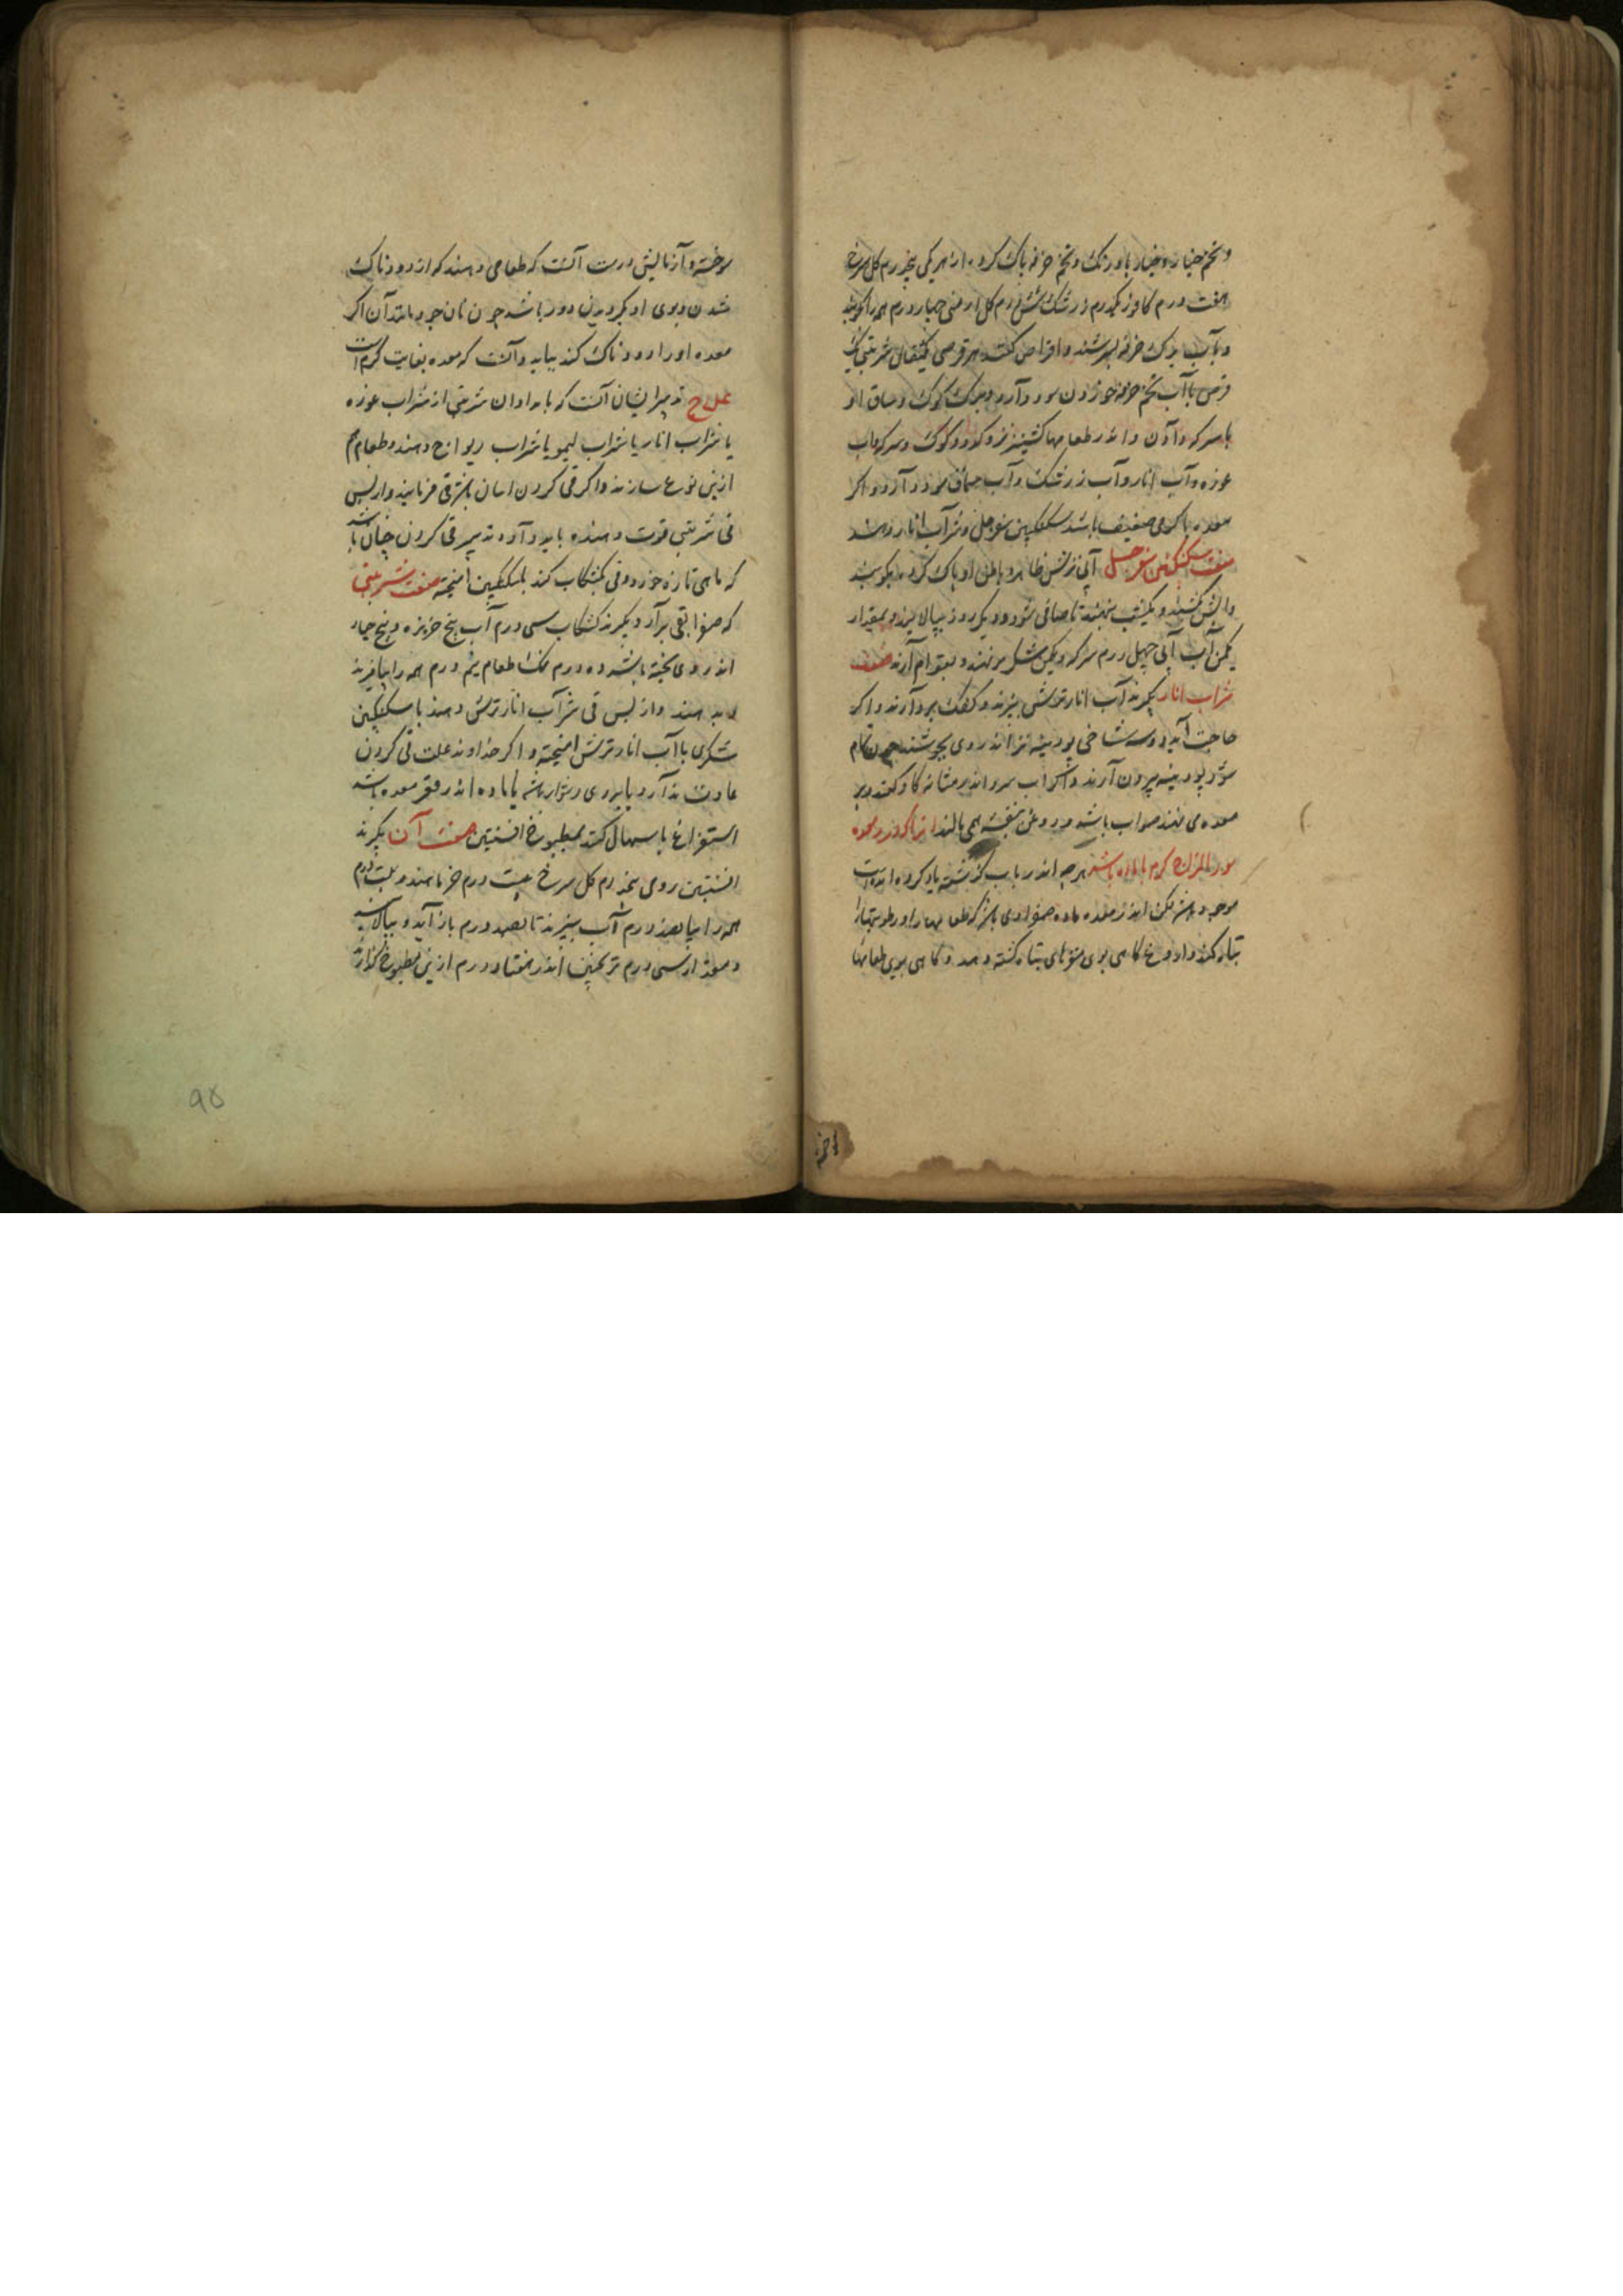 و تخم خیار و خیار باورنک و تخم خرفه پاک کرده از هر یکی پنجدرم کل سرخ
هفت درم کافور یکدرم زرشک شش درم کل ارمنی چهار درم همه را بکوبند
و بآب برک خرفه بسرشند و اقراص کنند هر قرصی یکمثقال شربتی یک
قرص با آب تخم خرفه خوردن سود دارد و برک کوک و ساق او
با سرکه دادن و اندر طعامها کشنیز تر و کدو و کوک و سرکه و آب
غوره و آب انار و آب زرشک و آب سماق سود دارد و اکر
معده با کرمی ضعیف باشد سکنکبین سفرجلی و شراب انار دهند
صفت سکنکبین سفرجلی آبی ترش ظاهر و باطن او پاک کرده بکوبند
و آبش کشند و یکشب بنهند تا صافی شود و دیکر روز بپالایند و بمقدار
یکمن آب آبی چهل درم سرکه و یکمن شکر بر نهند و بقوام آرند صفت
شراب انار بکیرند آب انار ترش بپزند و کفک بردارند و اکر
حاجت آید دو سه شاخی پودینه تر اندر وی بجوشند چون تمام
شود پودینه بیرون آرند و اکر آب سرد اندر مثانه کاو کنند و بر
معده می نهند صواب باشد و روغن بنفشه همی مالند انرا که در معده
سوء المزاج کرم با ماده باشد هر چه اندر باب کذشته یاد کرده آمده است
موجود باشد لکن اندر معده ماده صفراوی باشد که طعامها را و رطوبتها را
تباه کند و اروغ کاهی بوی تباه کشته دهد و کاهی بوی طعامها
سوخته و آزمایش درست آنست که طعامی دهند که از دودناک
شدن و بوی او بکردیدن دور باشد چون نان جو و مانند آن اکر
معده او را دودناک کند بباید دانست که معده بغایت کرم است
علاج تدبیر ایشان آنست که بامدادان شربتی از شراب غوره
یا شراب انار یا شراب لیمو یا شراب ریواج دهند و طعام هم
ازین نوع سازند و اکر قی کردن آسان باشد قی فرمایند و از پس
قی شربتی قوت دهنده باید داد و تدبیر قی کردن چنان باشد
که ماهی تازه خورد و قی بکشکاب کند با سکنکبین آمیخته صفت شربتی
که صفرا بقی برآرد بکیرند کشکاب سی درم آب بیخ خربزه و بیخ خیار
اندر وی پخته باشد ده درم نمک طعام نیم درم همه را بیامیزند
و بدهند و از پس قی شراب انار ترش دهند یا سکنکبین
شکری با آب انار ترش آمیخته و اکر خداوند علت قی کردن
عادت ندارد یا بروی دشوار باشد یا ماده اندر قعر معده باشد
استفراغ باسهال کنند بمطبوخ افسنتین صفت آن بکیرند
افسنتین رومی پنجدرم کل سرخ بیست درم خرما هندو بیست درم
همه را بپانصد درم آب بپزند تا بصد درم باز آید و بپالایند
و مقدار سی درم ترنجبین اندر هفتاد درم ازین مطبوخ کدازند
۹۵